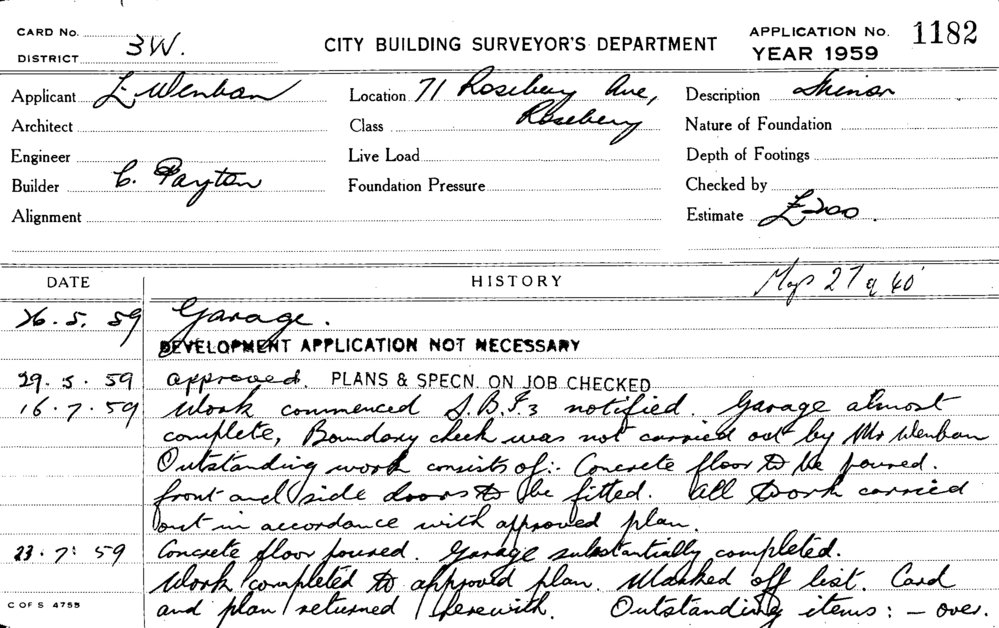 CARD No.
DISTRICT 3W.
CITY BUILDING SURVEYOR'S DEPARTMENT
APPLICATION No. 1182
YEAR 1959
Applicant L Wenban
Location 71 Rosebery Ave,
Rosebery
Description Minor
Architect
Class
Nature of Foundation
Engineer
Live Load
Depth of Footings
Builder C. Payten
Foundation Pressure
Checked by
Alignment
Estimate £200.
DATE
HISTORY
Map 27 of 40'
26.5.59 Garage.
DEVELOPMENT APPLICATION NOT NECESSARY
29.5.59 approved. PLANS & SPECN. ON JOB CHECKED
16.7.59 Work commenced notified. Garage almost
complete, Boundary check was not carried out by Mr Wenban
Outstanding work consists of:- Concrete floor to be poured.
front and side doors to be fitted. All work carried
out in accordance with approved plan.
23.7.59 Concrete floor poured. Garage substantially completed.
Work completed to approved plan. Marked off list. Card
and plan returned herewith. Outstanding items: - over.
C OF S 4755